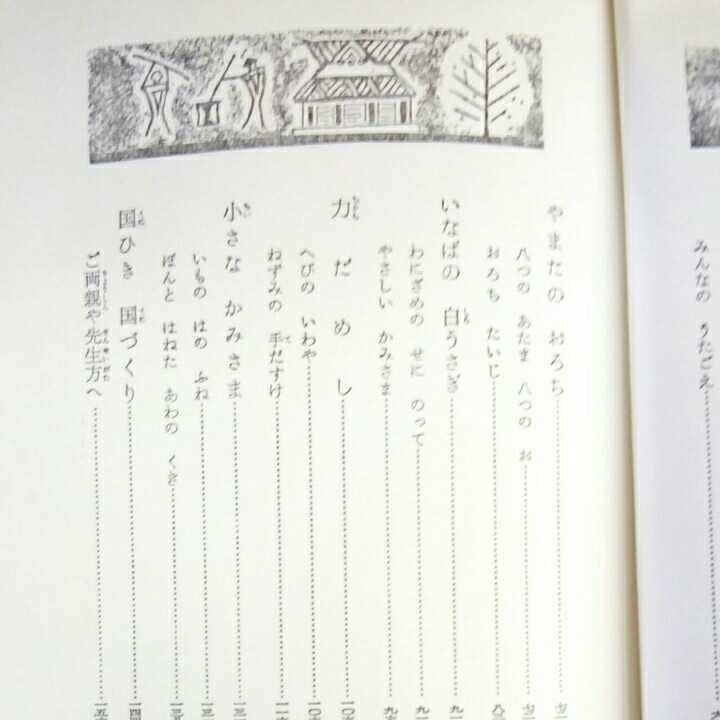 みんなの うたごえ
やまたの おろち
八つの あたま 八つの お
おろち たいじ
いなばの 白うさぎ
わにざめの せに のって
やさしい かみさま
力だめし
へびの いわや
ねずみの 手だすけ
小さな かみさま
いもの はの ふね
ぽんと はねた あわの くき
国ひき 国づくり
ご両親や先生方へ